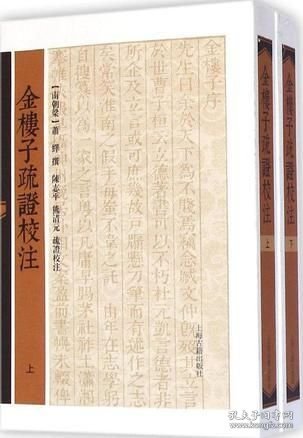 金樓子疏證校注
上
金樓子序
先生曰余於天下為不賤焉竊念臧文仲既歿其立言
於世曹子桓云立德著書可以不朽杜元凱言德者非
所企及立言或可庶幾故戶牖懸刀筆而有述作之志
矣常笑淮南之假手每嗤不韋之託人由年在志學躬
[南朝梁]蕭 繹 撰 陳志平 熊清元 疏證校注
上海古籍出版社
金樓子疏證校注 上
金樓子疏證校注 下
孔夫子旧书网